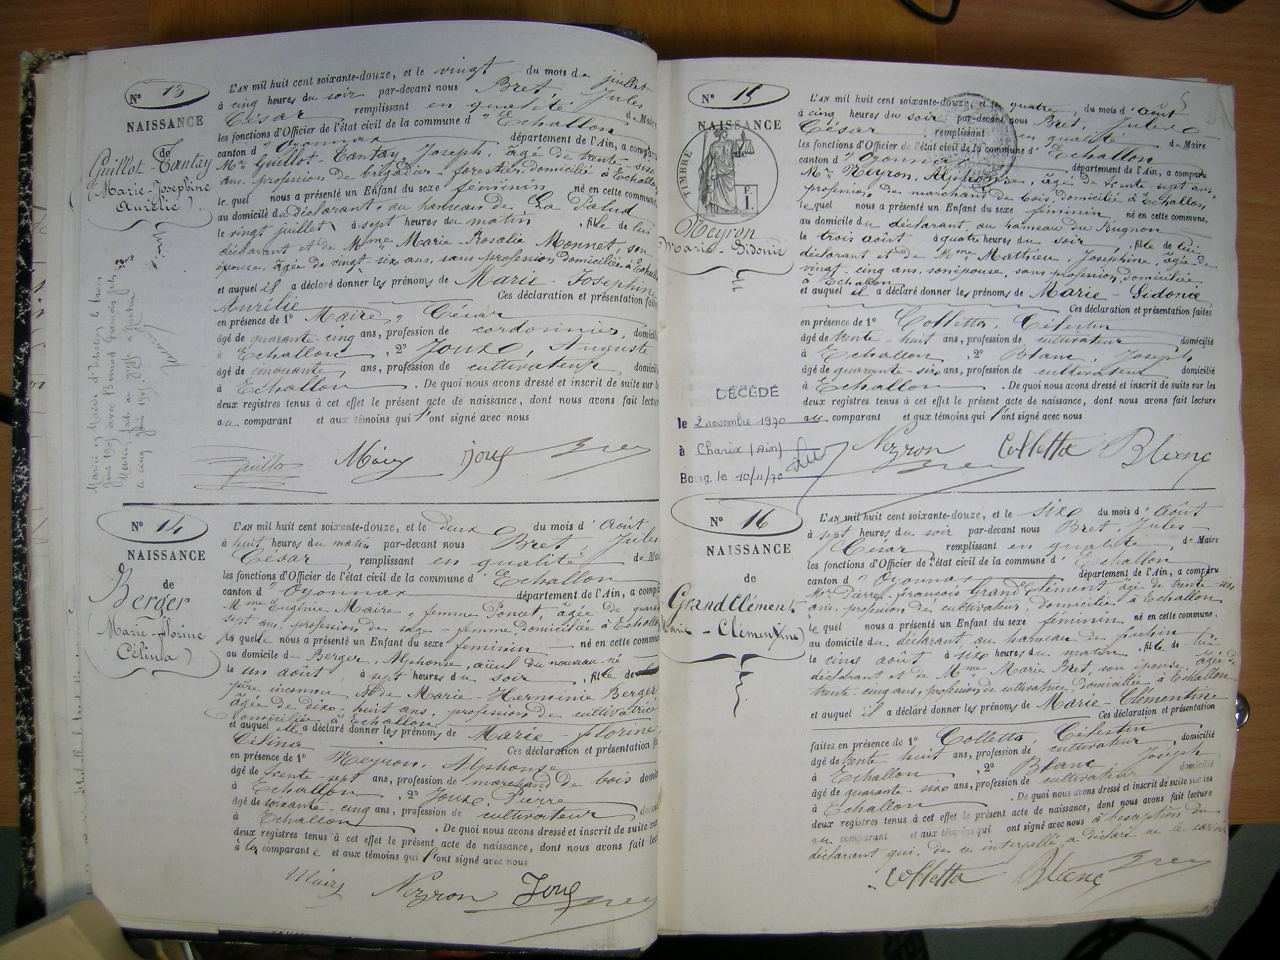 N° 13
NAISSANCE
de
Guillot-Tantay
Marie-Josephine
Aurélie
L'AN mil huit cent soixante-douze, et le vingt du mois de juillet
à cinq heures du soir par-devant nous Bret, Jules
César remplissant en qualité de Maire
les fonctions d'Officier de l'état civil de la commune d'Echallon
canton d'Oyonnax département de l'Ain, a comparu
Mr Guillot-Tantay Joseph, âgé de trente-
ans, profession de brigadier-forestier, domicilié à Echallon
lequel nous a présenté un Enfant du sexe féminin né en cette commune
au domicile du déclarant, au hameau de La
le vingt juillet à sept heures du matin, fille de lui
déclarant et de Mme Marie-Rosalie Monnet, son
épouse, âgée de vingt-six ans, sans profession domiciliée à
et auquel il a déclaré donner les prénoms de Marie-Josephine
Aurélie Ces déclaration et présentation faites
en présence de 1° Maire, César
âgé de quarante-cinq ans, profession de cordonnier, domicilié
à Echallon, 2° Joux, Auguste
âgé de cinquante ans, profession de cultivateur domicilié
à Echallon. De quoi nous avons dressé et inscrit de suite sur les
deux registres tenus à cet effet le présent acte de naissance, dont nous avons fait lecture
au comparant et aux témoins qui l'ont signé avec nous
N° 14
NAISSANCE
de
Berger
Marie-Florine
Célina
L'AN mil huit cent soixante-douze, et le deux du mois d'Août
à huit heures du matin par-devant nous Bret Jules
César, remplissant en qualité de Maire
les fonctions d'Officier de l'état civil de la commune d'Echallon
canton d'Oyonnax département de l'Ain, a comparu
Mme Eugénie Maire, femme Poncet, âgée de quarante
sept ans, profession de sage-femme, domiciliée à Echallon
laquelle nous a présenté un Enfant du sexe féminin né en cette commune
au domicile de Berger, Alphonse, aïeul du nouveau né
le un août à sept heures du soir, fille de
père inconnu et de Marie-Herminie Berger
âgée de dix-huit ans, profession de cultivatrice
domiciliée à Echallon
et auquel elle a déclaré donner les prénoms de Marie-Florine
Célina Ces déclaration et présentation
en présence de 1° Neyron, Alphonse
âgé de trente-sept ans, profession de marchand de bois domicilié
à Echallon, 2° Joux, Pierre
âgé de soixante-cinq ans, profession de cultivateur
à Echallon. De quoi nous avons dressé et inscrit de suite
deux registres tenus à cet effet le présent acte de naissance, dont nous avons fait lecture
à la comparante et aux témoins qui l'ont signé avec nous
Maire Neyron Joux
N° 15
NAISSANCE
TIMBRE
Neyron
Marie-Sidonie
L'AN mil huit cent soixante-douze, et le quatre du mois d'Août
à cinq heures du soir par-devant nous Bret, Jules
César, remplissant en qualité de Maire
les fonctions d'Officier de l'état civil de la commune d'Echallon
canton d'Oyonnax département de l'Ain, a comparu
Mr Neyron, Alphonse, âgé de trente sept ans,
profession de marchand de bois, domicilié à Echallon
lequel nous a présenté un Enfant du sexe féminin né en cette commune,
au domicile du déclarant, au hameau du Prugnon
le trois août à quatre heures du soir, fille de lui
déclarant et de Mme Mathieu, Josephine, âgée de
vingt-cinq ans, son épouse, sans profession, domiciliée
à Echallon
et auquel il a déclaré donner les prénoms de Marie-Sidonie
Ces déclaration et présentation faites
en présence de 1° Colletta, Célestin
âgé de trente-huit ans, profession de cultivateur domicilié
à Echallon, 2° Blanc, Joseph,
âgé de quarante-six ans, profession de cultivateur domicilié
à Echallon. De quoi nous avons dressé et inscrit de suite sur les
deux registres tenus à cet effet le présent acte de naissance, dont nous avons fait lecture
au comparant et aux témoins qui l'ont signé avec nous
DÉCÉDÉ
le 2 novembre 1970
à Charix (Ain)
Bourg, le 10/11/70
Neyron Colletta Blanc
N° 16
NAISSANCE
de
GrandClément
Marie-Clémentine
L'AN mil huit cent soixante-douze, et le six du mois d'Août
à sept heures du soir par-devant nous Bret, Jules-
César remplissant en qualité de Maire
les fonctions d'Officier de l'état civil de la commune d'Echallon
canton d'Oyonnax département de l'Ain, a comparu
Mr Pierre-François GrandClément, âgé de trente-
ans, profession de cultivateur, domicilié à Echallon
lequel nous a présenté un Enfant du sexe féminin né en cette commune,
au domicile du déclarant au hameau de
le cinq août à six heures du matin, fille de lui
déclarant et de Mme Marie Bret, son épouse, âgée de
trente-cinq ans, profession de cultivatrice, domiciliée à Echallon
et auquel il a déclaré donner les prénoms de Marie-Clémentine
Ces déclaration et présentation
faites en présence de 1° Colletta, Célestin
âgé de trente huit ans, profession de cultivateur, domicilié
à Echallon, 2° Blanc Joseph
âgé de quarante-six ans, profession de cultivateur domicilié
à Echallon. De quoi nous avons dressé et inscrit de suite sur les
deux registres tenus à cet effet le présent acte de naissance, dont nous avons fait lecture
au comparant et aux témoins qui ont signé avec nous à l'exception du
déclarant qui, de ce interpellé a déclaré ne le savoir
Colletta Blanc